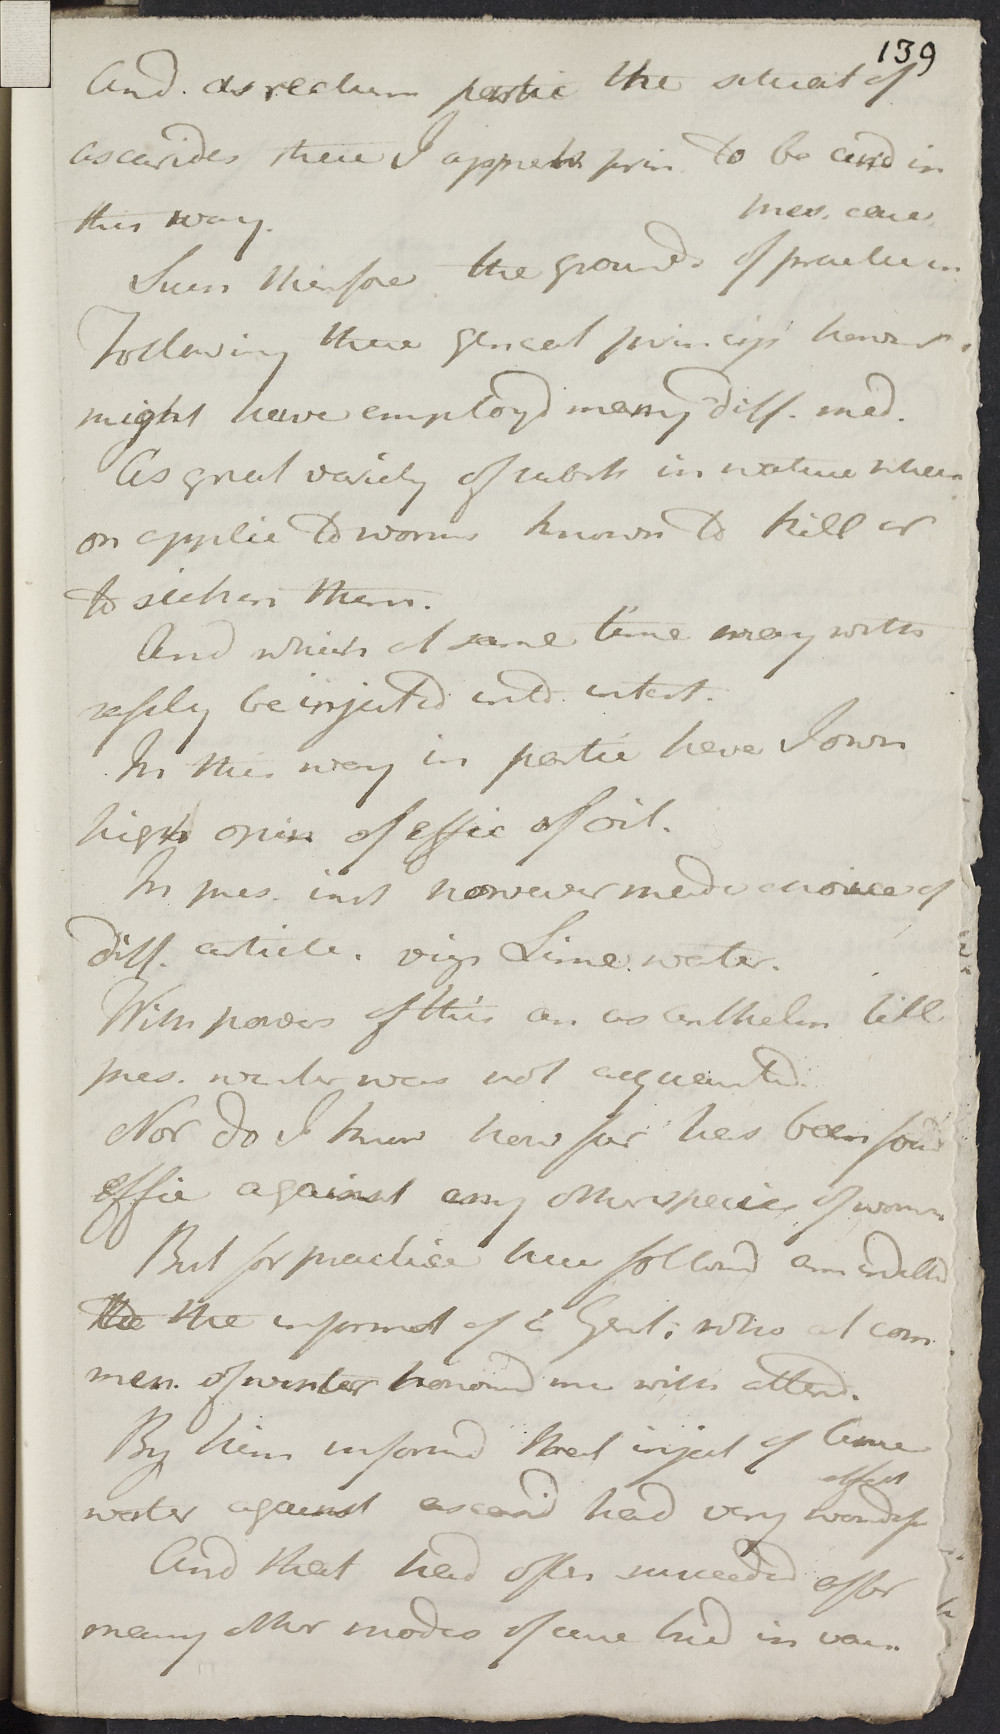 139
And. as rectum partic the situat of
ascarides there I appreh prin to be aird in
this way. pres. case
Such therefore the grounds of practice in
Following these general princip however
might have employd many diff. med.
As great variety of subst in nature when
on applic to worms known to kill or
to sicken them.
And which at same time may with
safety be injected into intest.
In this way in partic have I own
high opin of effic of oil.
In pres. inst however made choice of
diff. article. viz Lime water.
With powers of this an as anthelm till
pres. winter was not acquainted
Nor do I know how far has been found
effic against any other species of worms
But for practice here followd am indebted
the informat of a Gent; who at com
men. of winter honourd me with attend.
By him informd that inject of lime
effect
water against ascarid had very wonderf
And that had often succeeded after
many other modes of cure tried in vain.